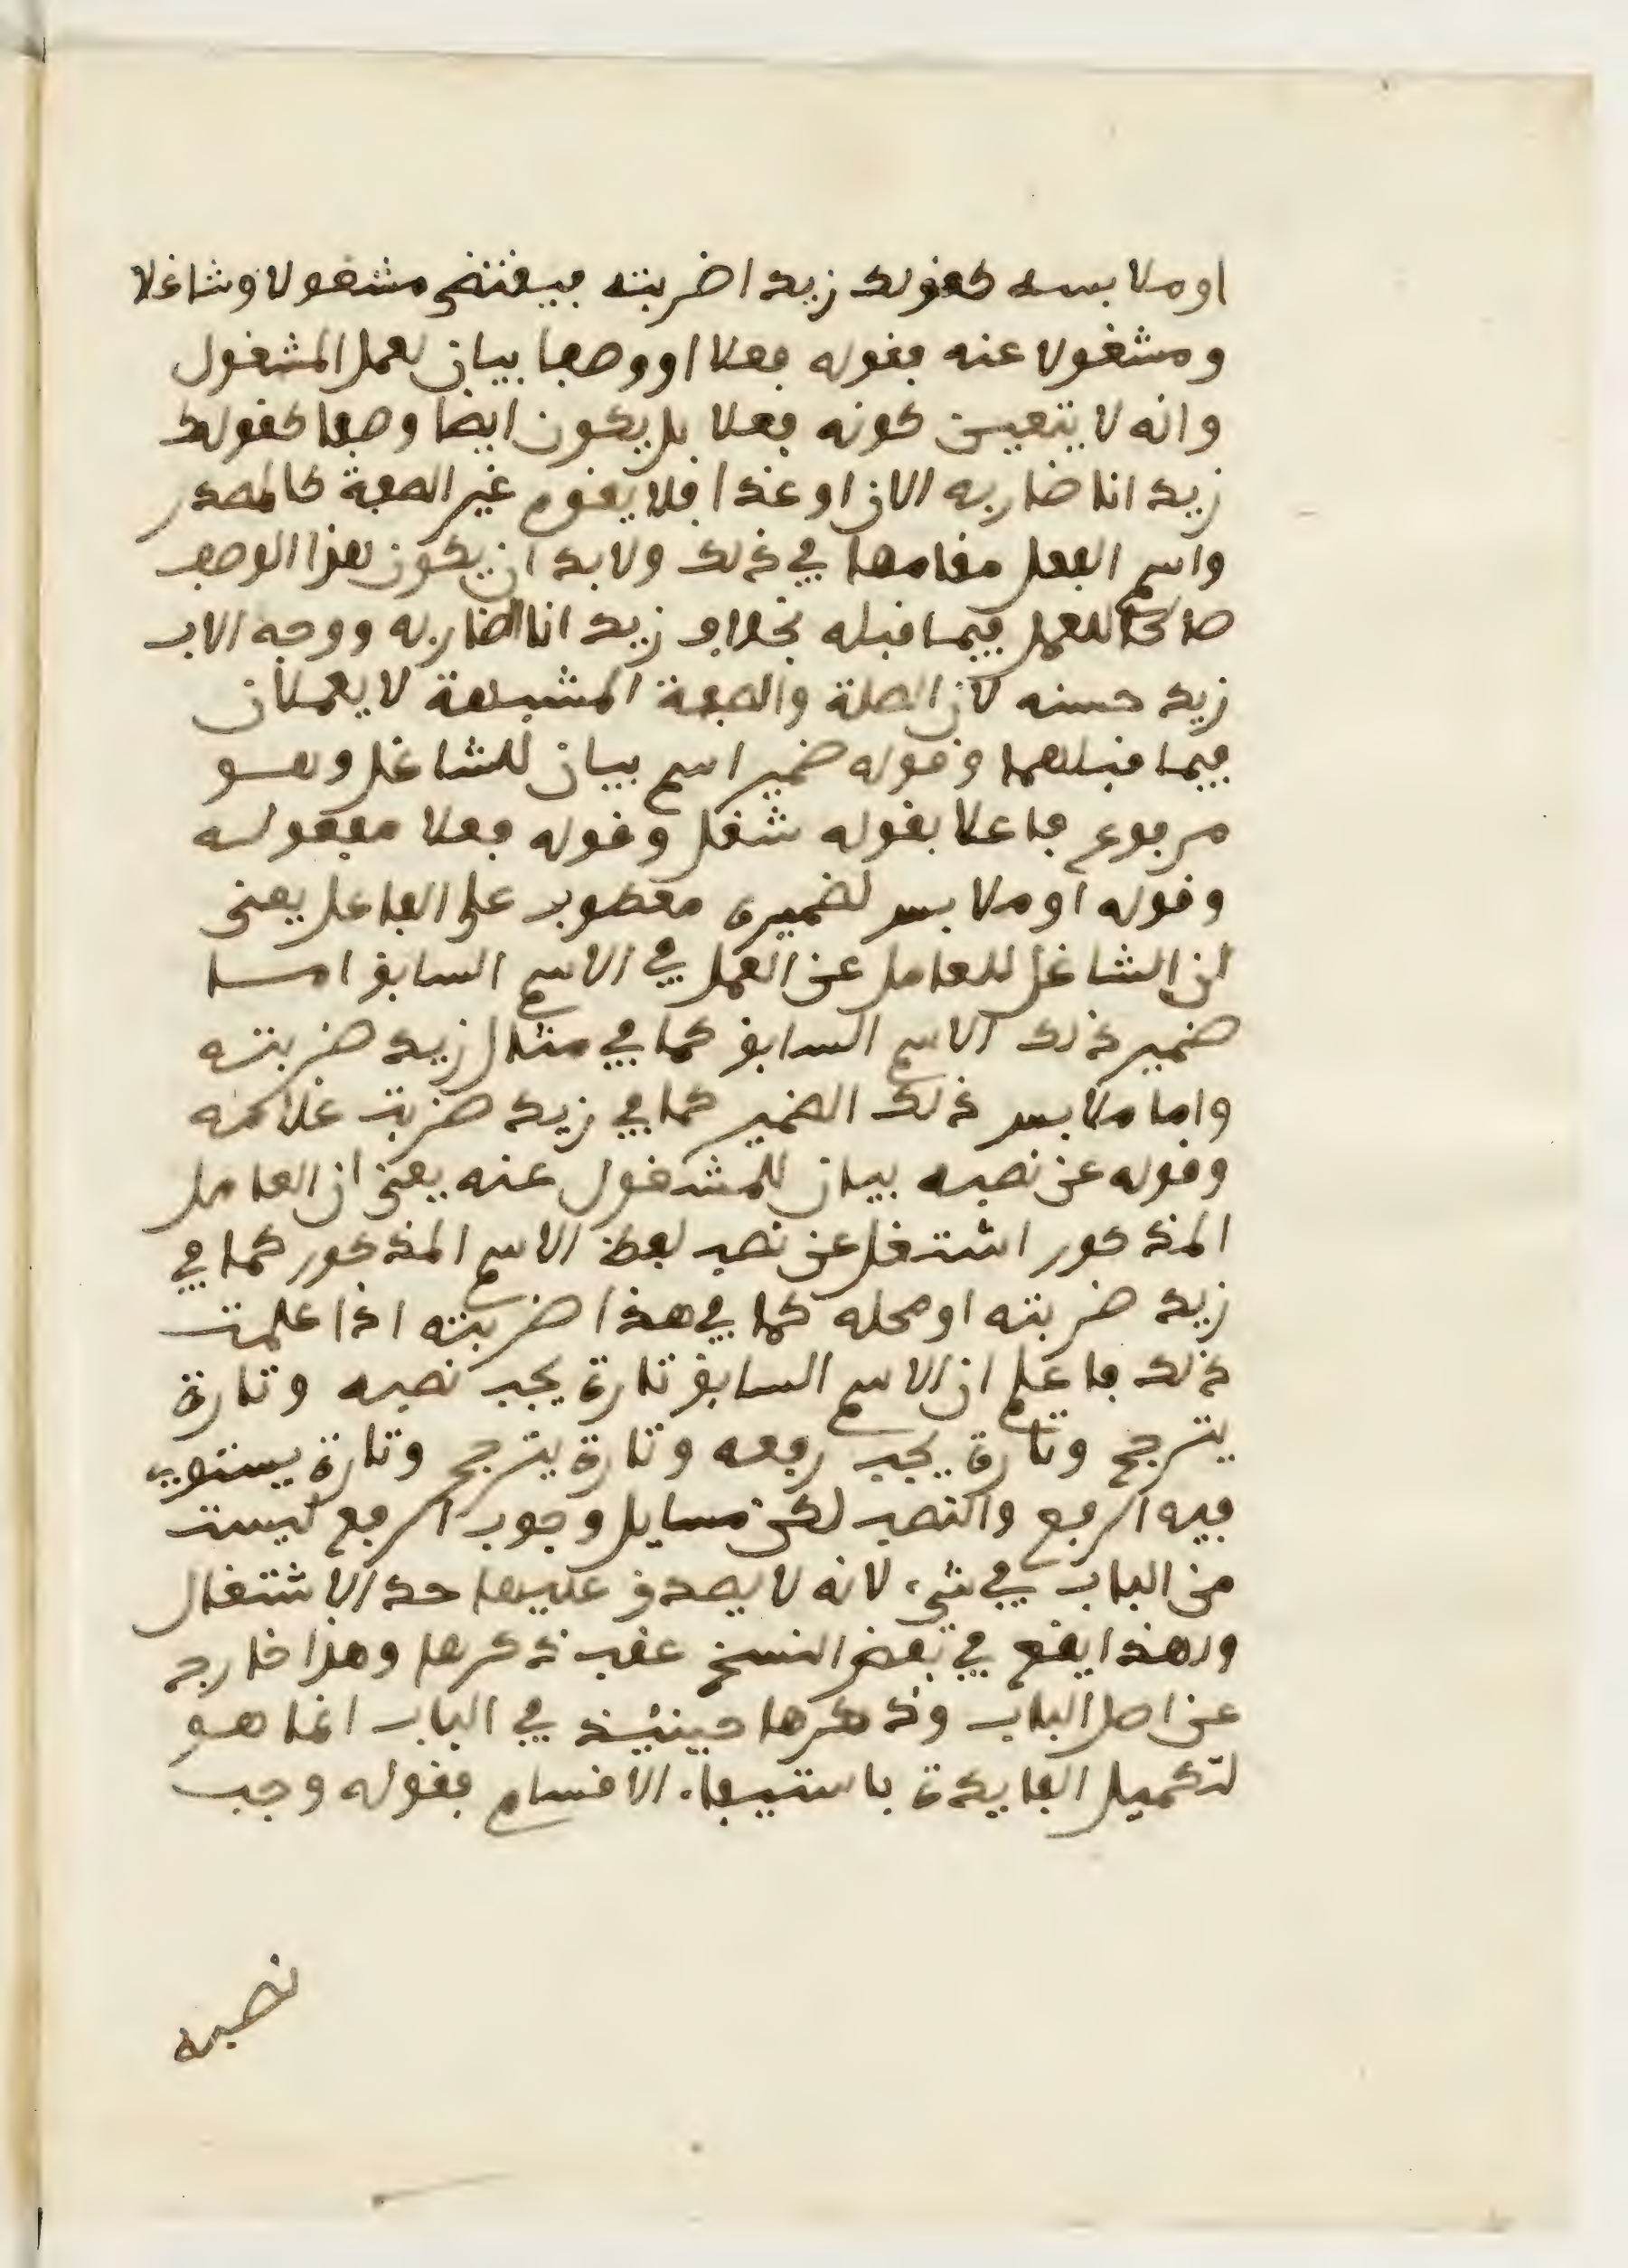 او ملابسه كقولك زيدا ضربته فيقتضى مشغولا وشاغلا
ومشغولا عنه فقوله فعلا او وصفا بيان لعمل المشغول
وانه لا يتعين كونه فعلا بل يكون ايضا وصفا كقولك
زيد انا ضاربه الان او غدا فلا يقوم غير الصفة كالمصدر
واسم الفعل مقامها في ذلك ولا بد ان يكون هذا الوصف
صالحا للعمل فيما قبله بخلاف زيد انا الضاربه ووجه الاب
زيد حسنه لان الصلة والصفة المشبهة لا يعملان
فيما قبلهما وقوله ضمير اسم بيان للشاغل وهو
مرفوع فاعلا بقوله شغل وقوله فعلا مفعوله
وقوله او ملابس لضميره معطوف على الفاعل يعنى
ان الشاغل للعامل عن العمل في الاسم السابق اما
ضمير ذلك الاسم السابق كما في مثال زيد ضربته
واما ملابس ذلك الضمير كما في زيد ضربت غلامه
وقوله عن نصبه بيان للمشغول عنه يعنى ان العامل
المذكور اشتغل عن نصب لفظ الاسم المذكور كما في
زيد ضربته او محله كما في هذا ضربته اذا علمت
ذلك فاعلم ان الاسم السابق تارة يجب نصبه وتارة
يترجح وتارة يجب رفعه وتارة يترجح وتارة يستوي
فيه الرفع والنصب لكن مسايل وجوب الرفع ليست
من الباب في شيء لانه لا يصدق عليها حد الاشتغال
ولهذا يقع في بعض النسخ عقب ذكرها وهذا خارج
عن اصل الباب وذكرها حينئذ في الباب انما هو
لتكميل الفايدة باستيفاء الاقسام فقوله وجب
نصبه